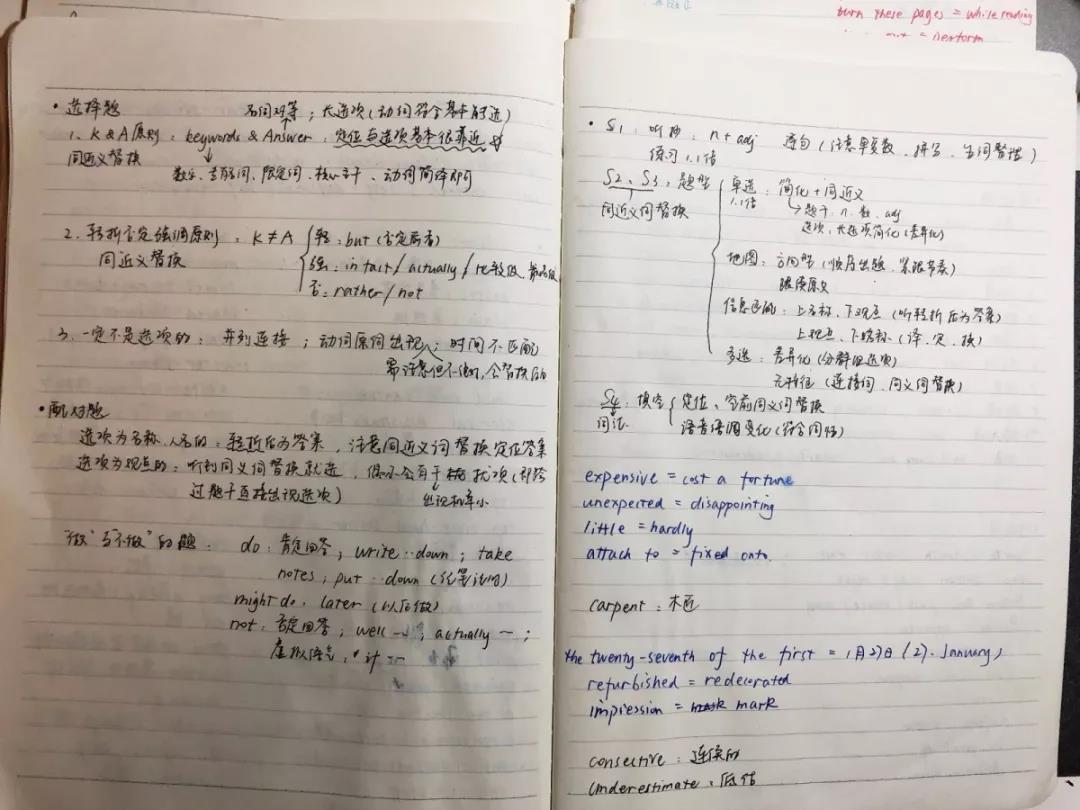 turn these pages = while reading
= perform
· 选择题 名词对等；长选项（动词符合基本可选）
1、K & A原则：keywords & Answer，定位与选项基本很靠近
同近义替换 数字、专有名词、限定词、核心主干、动词简译即可
2. 转折否定强调原则，K ≠ A 转：but（否定前者）
同近义替换 强：in fact / actually / 比较级、最高级
否：rather / not
3、一定不是选项的：并列连接；动词原词出现；时间不匹配
需注意但不绝对，会替换后的
· 配对题
选项为名称、人名的：转折后为答案，注意同近义词替换定位答案
选项为观点的：听到同义词替换就选，很小会有干扰项（即略
过题干直接出现选项） 出现机率小
"做"与不做"的题： do：肯定回答；write…down；take
notes；put…down（纪笔记的）
might do：later（以后做）
not：否定回答；well…；actually…；
虚拟语气，if …
· S1：听抄：n + adj 逐句（注意单复数、拼写、生词整理）
练习1.1倍
S2、S3，题型 单选：简化 + 同近义
同近义词替换 1.1倍 → 题干、n、数、adj
选项：长选项简化（差异化）
地图：方向型（顺序出题，紧跟节奏）
跟读原文
信息匹配：上名称、下观点（听转折后为答案）
上观点、下名称（译、定、换）
多选：差异化（分群组选项）
（连接词、同义词替换）
S4：填空 定位、空前同义词替换
同S1 语音语调变化（符合同S1）
expensive = cost a fortune
unexpected = disappointing
little = hardly
attach to = fixed onto.
carpent：木匠
the twenty-seventh of the first = 1月27日（27. January）
refurbished = redecorated
impression = mark
consective：连续的
underestimate：低估